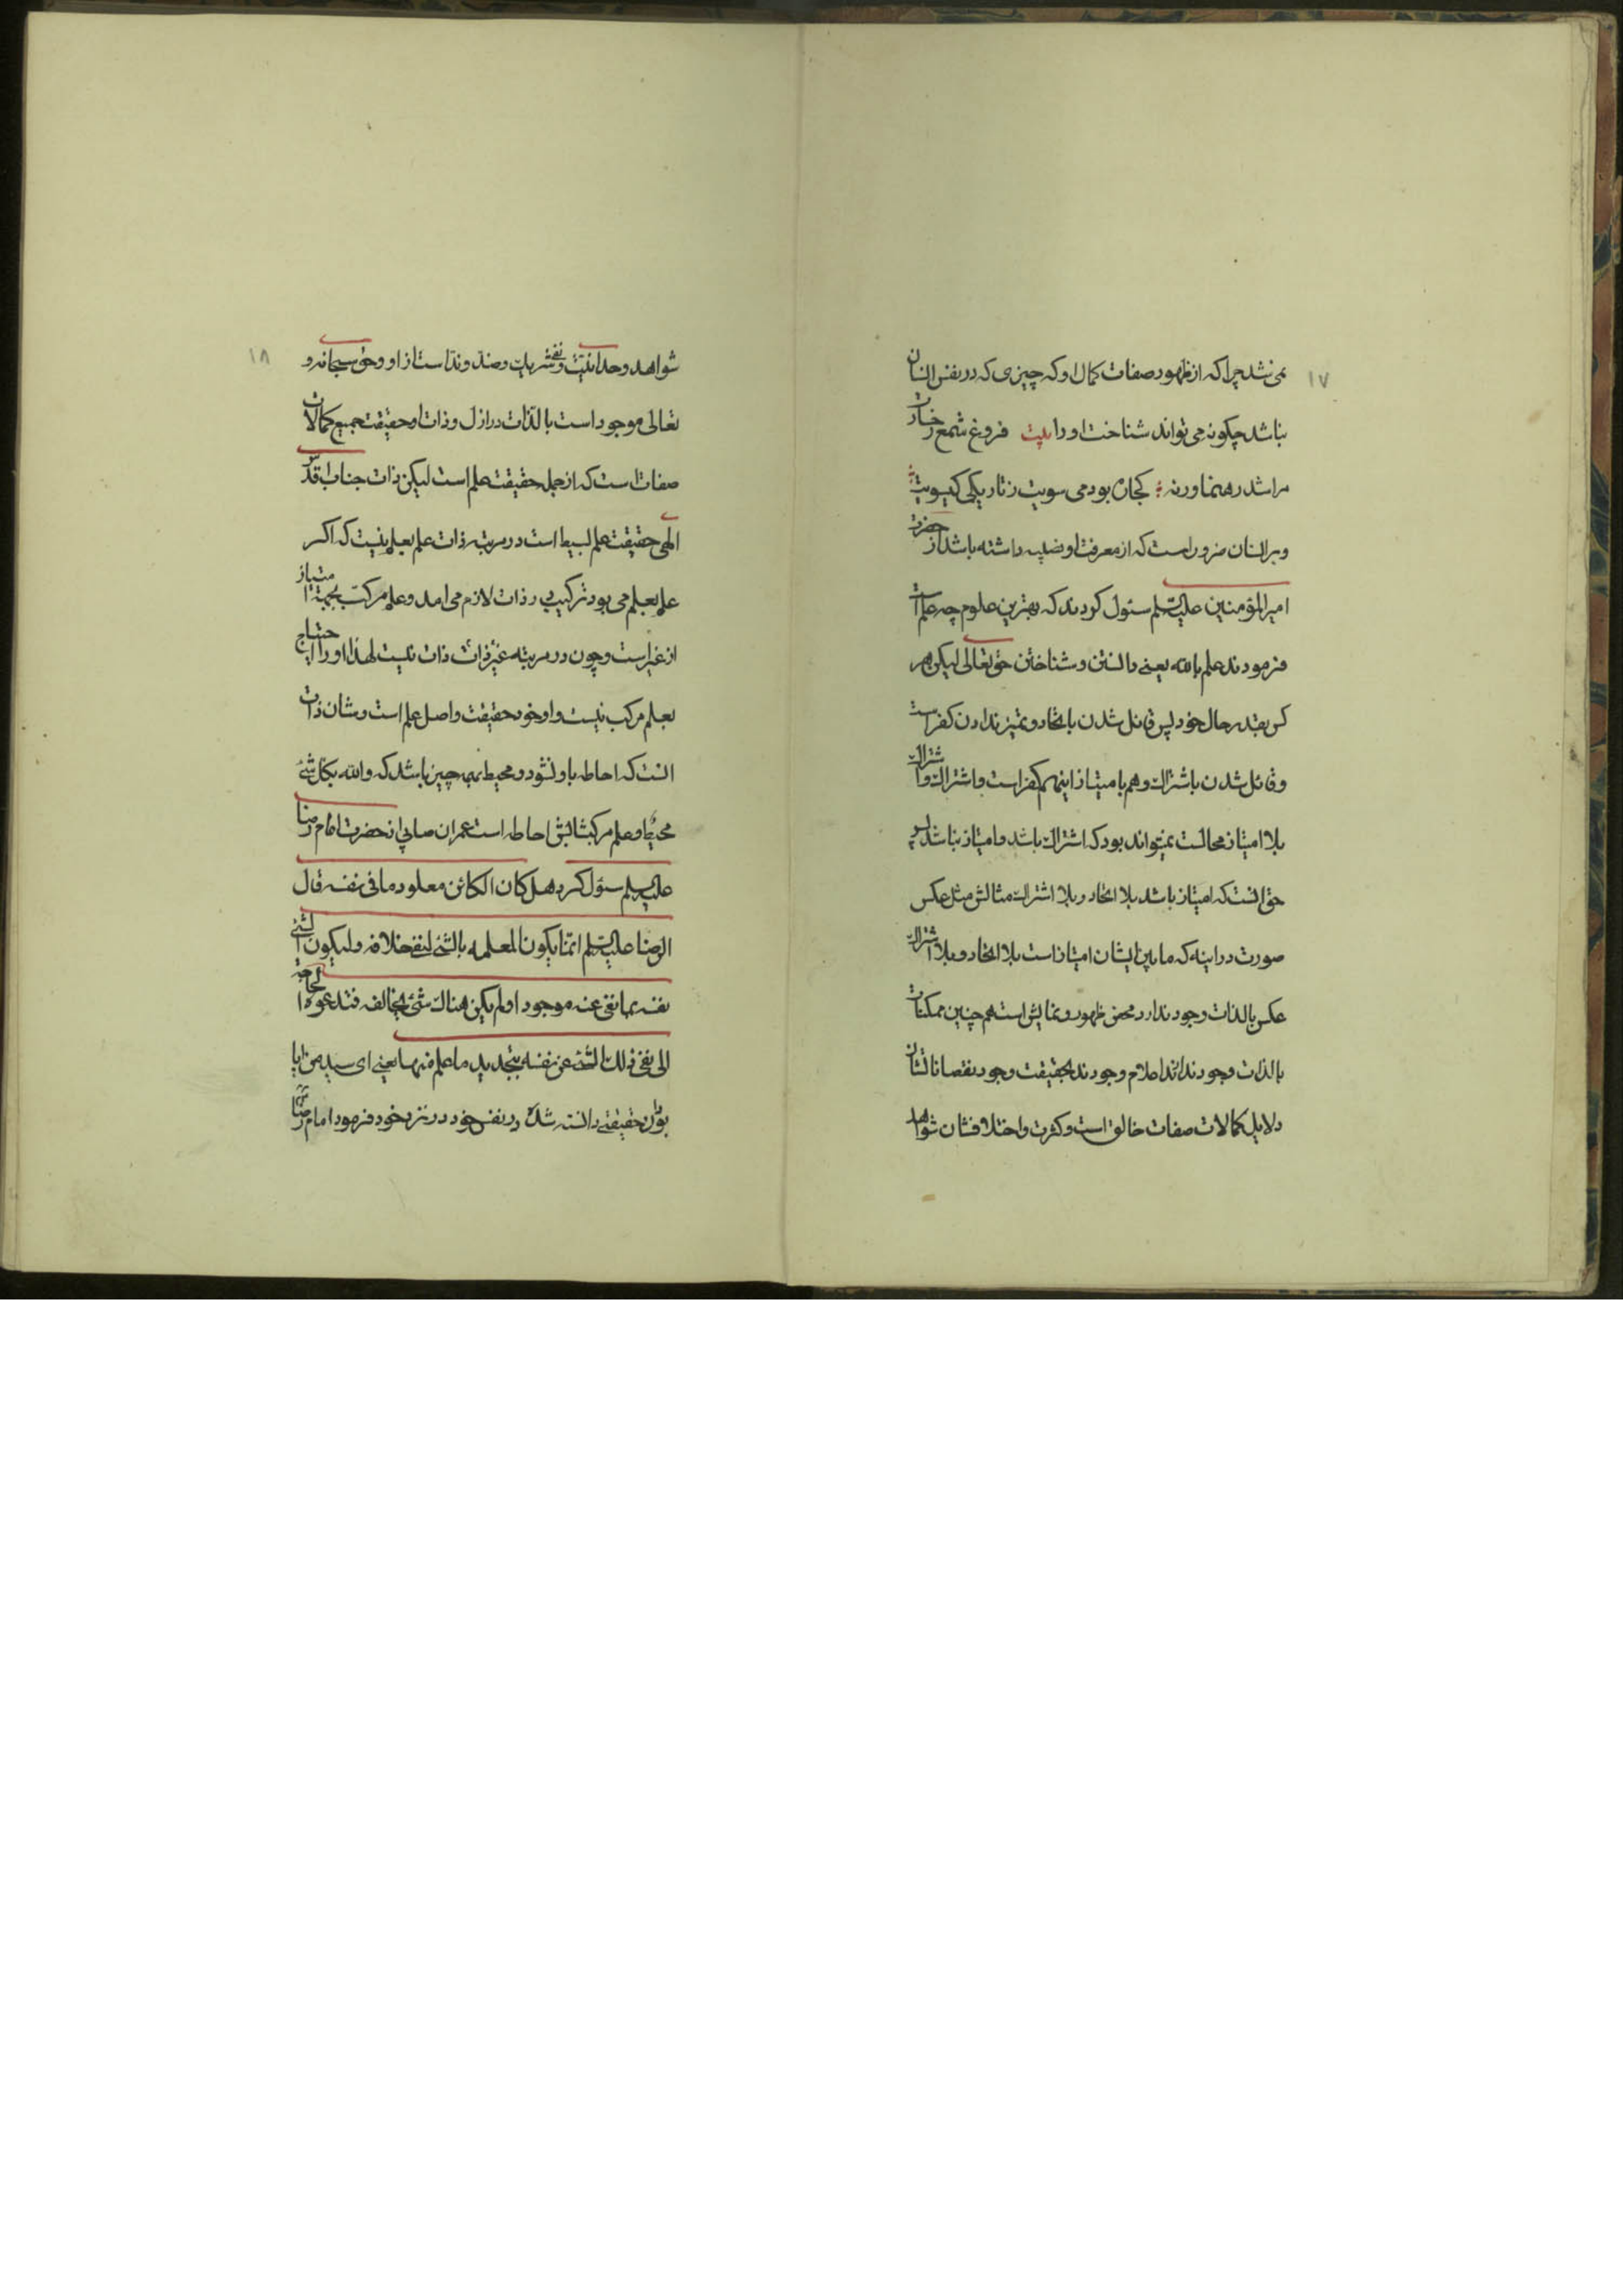 ۱۷
نمی‌شد چرا که از ظهور صفات کمال او که چیزی که در نفس انسان
نباشد چکونه می تواند شناخت او را بیت فروغ شمع رخسارت
مرا شد رهنما ورنه کجا ره بودمی سویت ز تاریکی کیسویت
و بر انسان ضرور است که از معرفت او داشته باشد از حضرت
امیر المؤمنین علیه السلم سئول کردند که بهترین علوم چه علم است
فرمودند علم بالله یعنی دانستن و شناختن حق تعالی لیکن هر
کس بقدر حال خود پس قائل شدن باتحاد و تمیز ندادن کفر است
و قائل شدن باشتراک و هم بامتیاز اینهم کفر است و اشتراک و اشتراک
بلا امتیاز محالست نمیتواند بود که اشتراک باشد و امتیاز نباشد پس
حق انست که امتیاز باشد بلا اتحاد و بلا اشتراک مثالش مثل عکس
صورت در اینه که مابین ایشان امتیاز است بلا اتحاد و بلا اشتراک
عکس بالذات وجود ندارد محض ظهور و نمایش است هم چنین ممکنات
بالذات وجود ندارند وجودند بحقیقت وجود نقصاناتشان
دلایل کمالات صفات خالق است و کثرت و اختلافشان شواهد
۱۸
شواهد وحدانیت و نفی شریک و ضد و ند است از او و حق سبحانه و
تعالی موجود است بالذات در ازل و ذات او حقیقت جمیع کمالات
صفات است که از جمله حقیقت علم است لیکن ذات جناب اقدس
الهی حقیقت علم بسیط است در مرتبه ذات علم بعلم نیست که اکر
علم بعلم می بود ترکیب در ذات لازم می امد و علم مرکب بجهة امتیاز
از غیر است و چون در مرتبه غیر ذات نیست لهذا او را احتیاج
بعلم مرکب نیست و او خود حقیقت و اصل علم است و شان ذات
انست که احاطه باو نشود و محیط بهمه چیز باشد که والله بکل شئ
محیط و علم مرکب شانش احاطه است عمران صابی از حضرت امام رضا
علیه السلم سئول کرد هل کان الکائن معلوما فی نفسه قال
الرضا علیه السلم انما یکون المعلمه بالشئ لنفی خلافه ولیکون الشئ
نفسه بما نفی عنه موجودا ولم یکن هناک شئ یخالفه فتدعوه الحاجة
الی نفی ذلک الشئ عن نفسه بتحدید ما علم منها یعنی ای سید من ایا
بود حقیقتی دانسته شده در نفس خود در نزد خود فرمود امام رضا